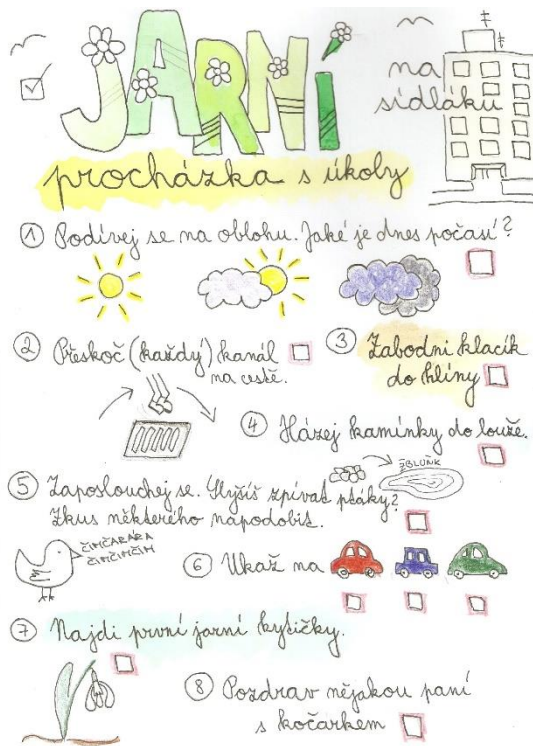 JARNÍ
na
sídláku
procházka s úkoly
1 Podívej se na oblohu. Jaké je dnes počasí?
2 Přeskoč (každý) kanál
na cestě.
3 Zabodni klacík
do hlíny
4 Házej kamínky do louže.
ŽBLUŇK
5 Zaposlouchej se. Slyšíš zpívat ptáky?
Zkus některého napodobit.
ČIMČARÁRA
ČIMČIMČIM
6 Ukaž na
7 Najdi první jarní kytičky.
8 Pozdrav nějakou paní
s kočárkem